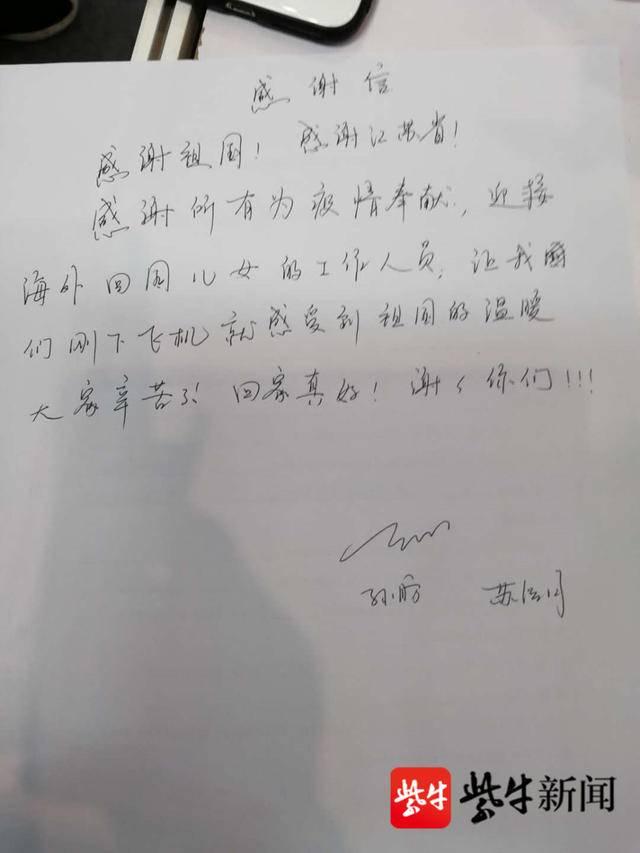 感谢信
感谢祖国！ 感谢江苏省！
感谢所有为疫情奉献，迎接
海外回国儿女的工作人员，让我
们刚下飞机就感受到祖国的温暖
大家辛苦了！ 回家真好！ 谢々你们！！！
紫牛 紫牛新闻